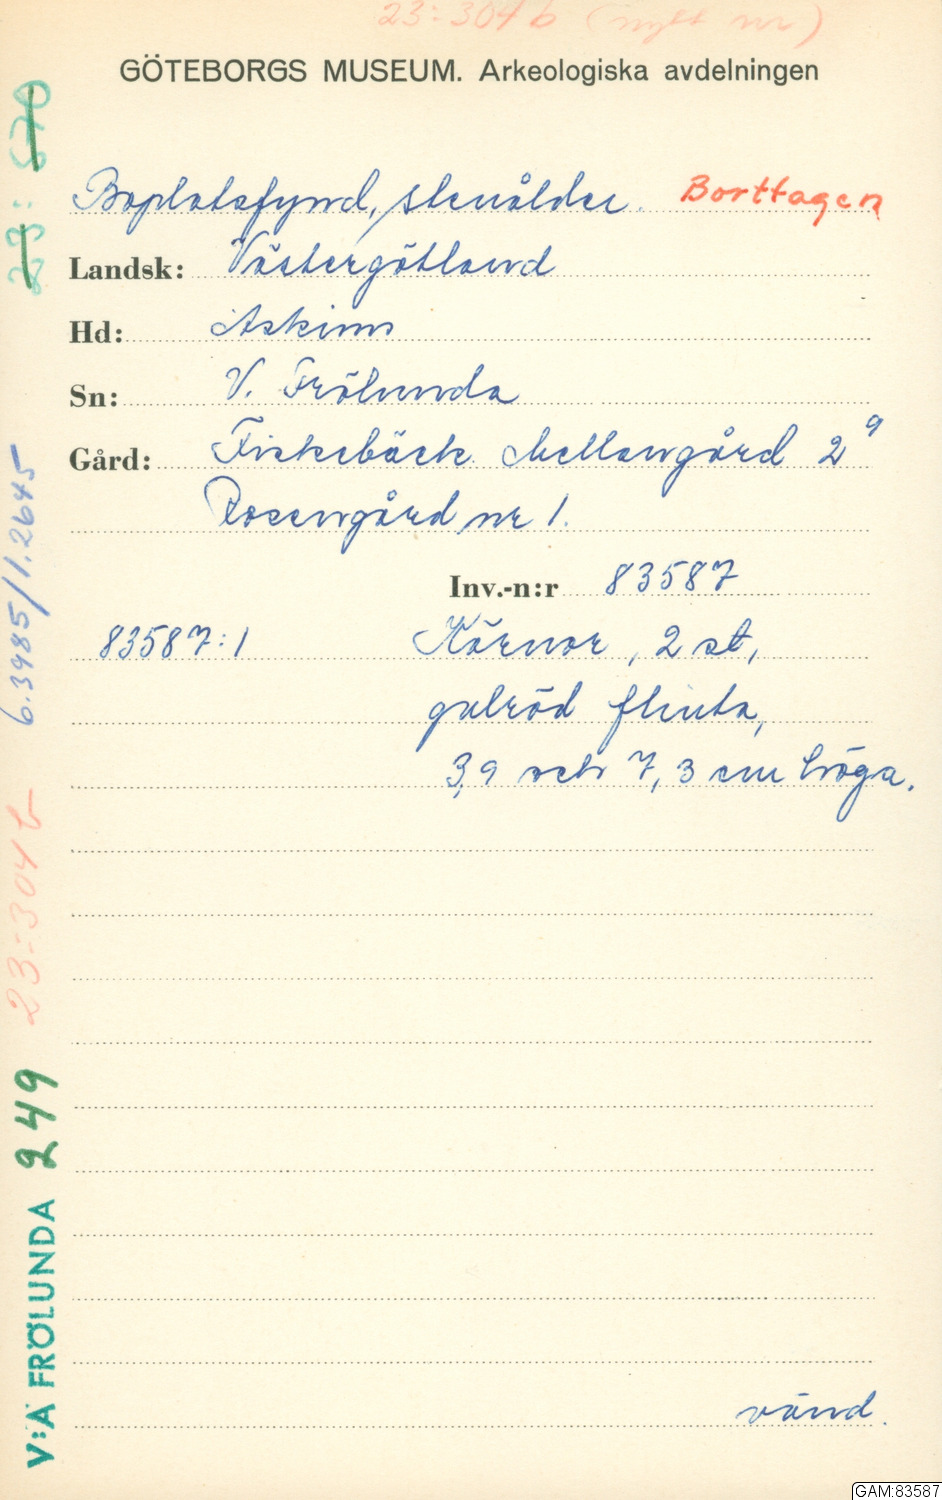 23:304 b (nytt nr)
GÖTEBORGS MUSEUM. Arkeologiska avdelningen
Boplatsfynd, stenålder. Borttagen
Landsk: Västergötland
Hd: Askims
Sn: V. Frölunda
Gård: Fiskebäck Mellangård 2 9
Rosengård nr 1.
Inv.-n:r 83587
83587:1 Kärnor, 2 st,
gulröd flinta,
3,9 och 7,3 cm höga.
vänd.
V:A FRÖLUNDA 249 23:304 b 6.3985/1.2645 23:670
GAM:83587